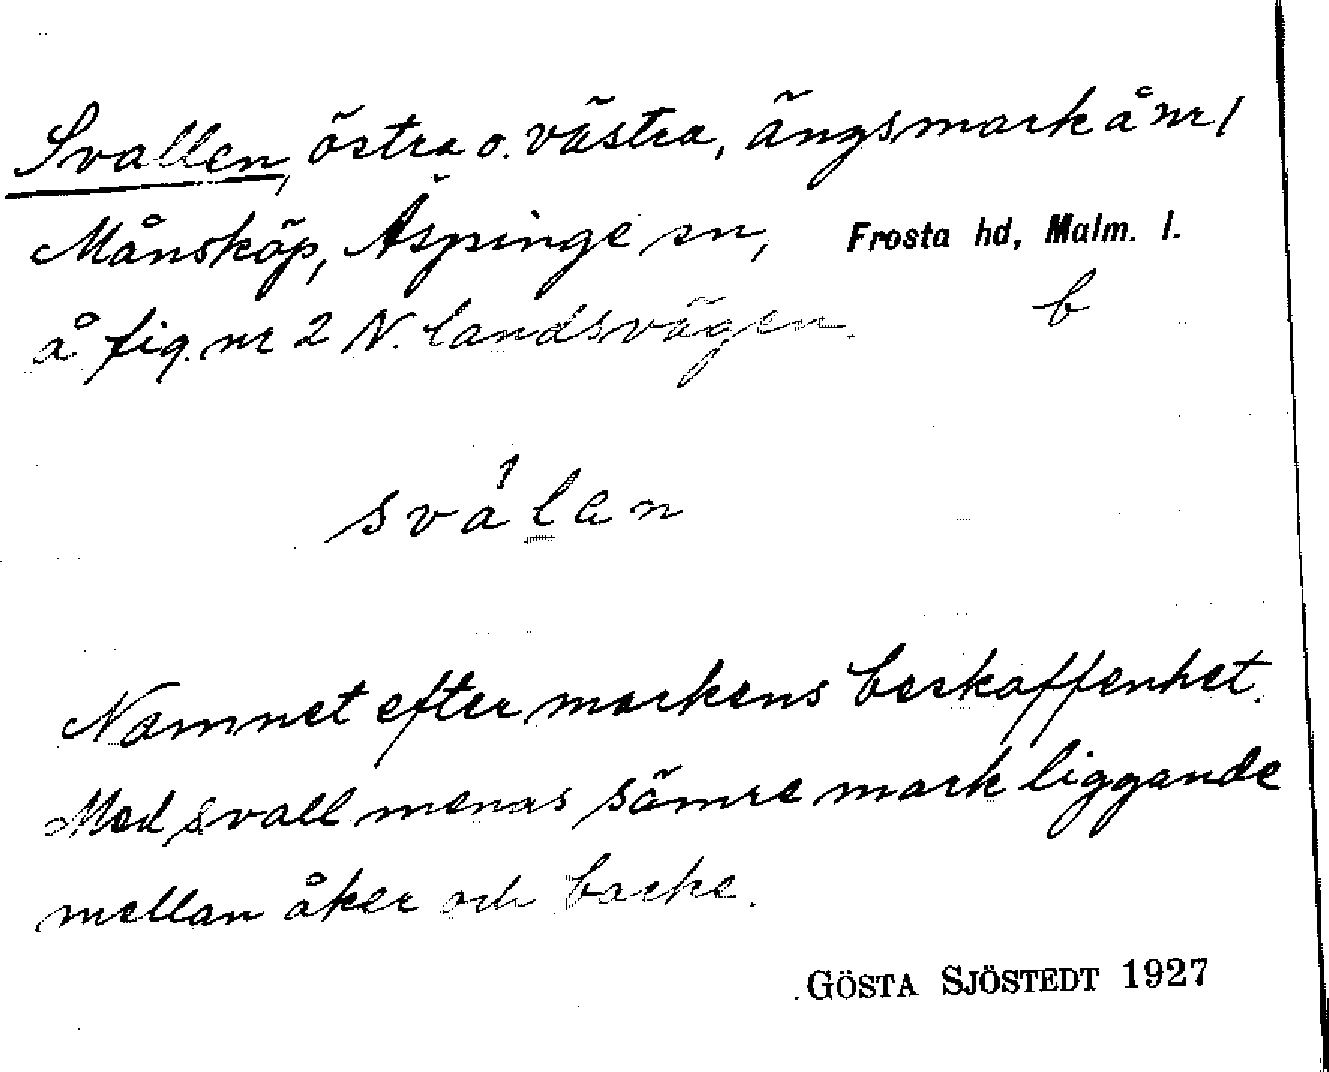 Svallen, östra o. västra, ängsmark å nr 1
Månsköp, Äspinge sn, Frosta hd, Malm. l.
å fig. nr 2 N. landsvägen. b
Namnet efter markens beskaffenhet.
Med svall menas sämre mark liggande
mellan åker och backe.
GÖSTA SJÖSTEDT 1927